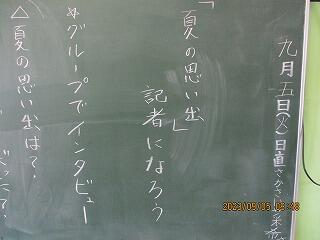 九月五日(火)日直さかさ
「夏の思い出」
記者になろう
グループでインタビュー
△夏の思い出は?
2023/09/05 08:48